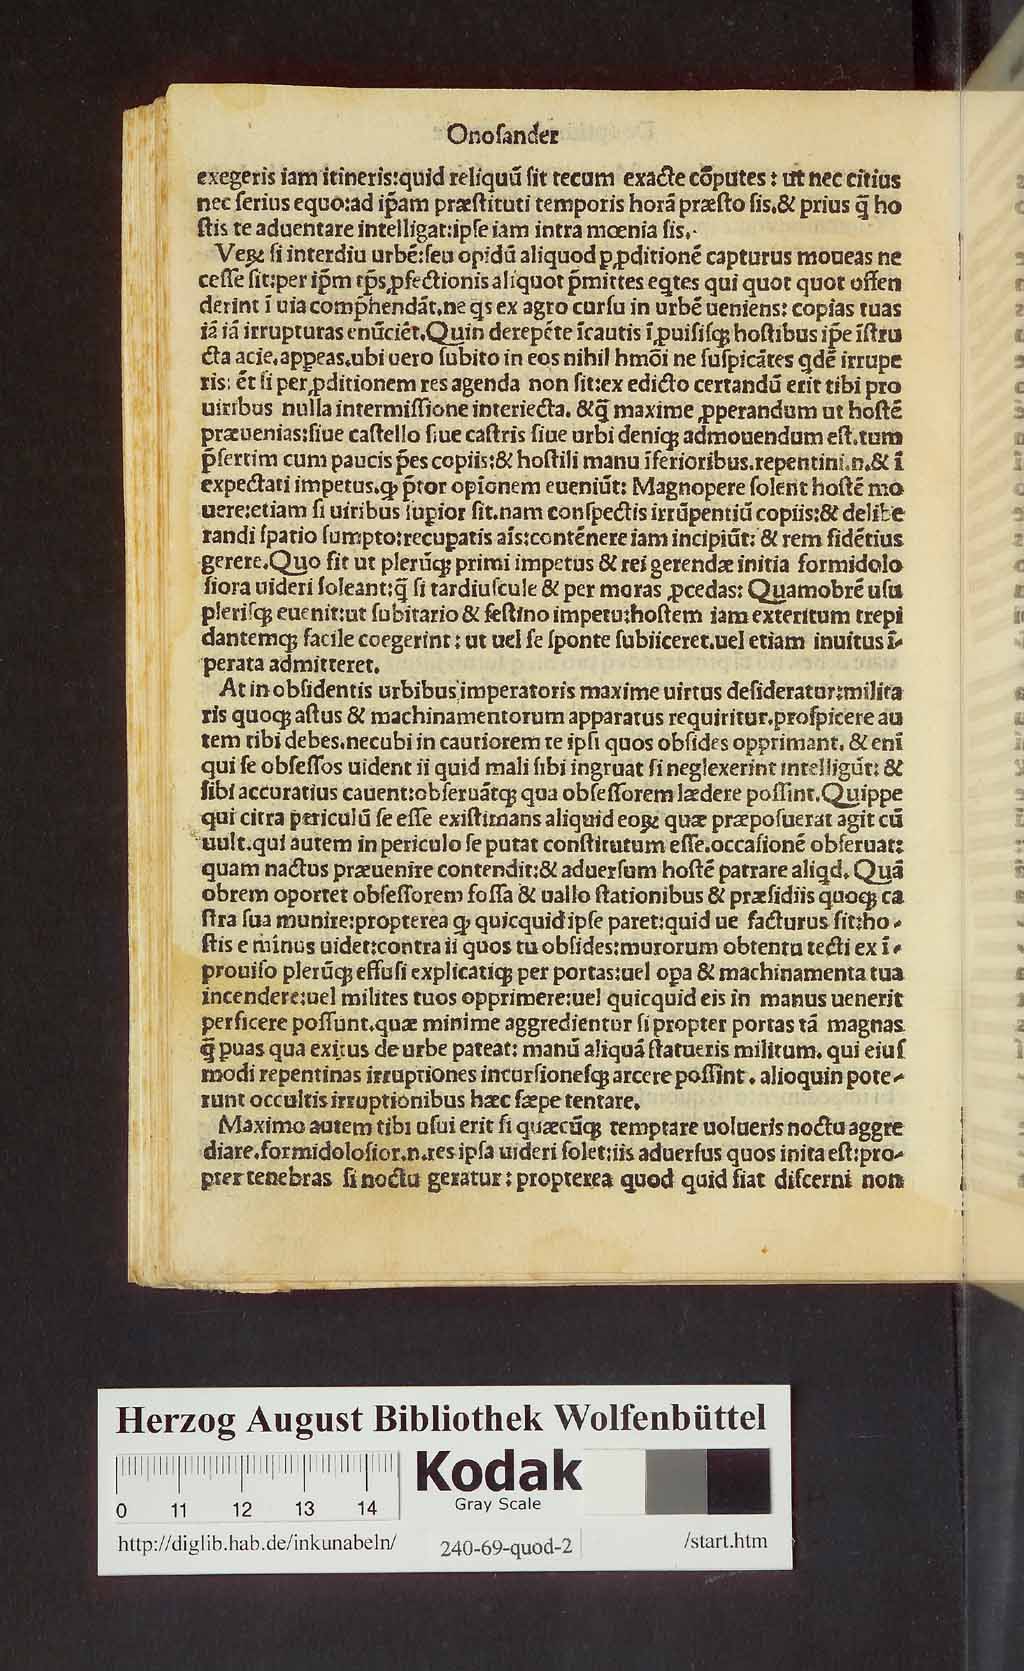 Onoſander
exegeris iam itineris:quid reliquū ſit tecum exacte cōputes : ut nec citius
nec ſerius equo:ad ip̄am præſtituti temporis horā præſto ſis.& prius q̄ ho
ſtis te aduentare intelligat:ipſe iam intra mœnia ſis.
Veꝝ ſi interdiu urbē:ſeu opidū aliquod ꝓ ꝓditionē capturus moueas ne
ceſſe ſit:per ip̄m tp̄s ꝓfectionis aliquot p̄mittes eqtes qui quot quot offen
derint ī uia comp̄hendāt.ne qs ex agro curſu in urbē ueniens: copias tuas
iā iā irrupturas enūciēt.Quin derepēte īcautis īꝓuiſiſqꝫ hoſtibus ip̄e īſtru
cta acie.appeas.ubi uero ſubito in eos nihil hmōi ne ſuſpicātes qdē irrupe
ris: ēt ſi per ꝓditionem res agenda non ſit:ex edicto certandū erit tibi pro
uiribus nulla intermiſſione interiecta. &q̄ maxime ꝓperandum ut hoſtē
præuenias:ſiue caſtello ſiue caſtris ſiue urbi deniqꝫ admouendum eſt.tum
p̄ſertim cum paucis p̄es copiis:& hoſtili manu īferioribus.repentini.n.& ī
expectati impetus.ꝙ p̄tor opīonem eueniūt: Magnopere ſolent hoſtē mo
uere:etiam ſi uiribus ſuꝑior ſit.nam conſpectis irrūpentiū copiis:& delibe
randi ſpatio ſumpto:recupatis aīs:contēnere iam incipiūt: & rem fidētius
gerere.Quo fit ut plerūqꝫ primi impetus & rei gerendæ initia formidolo
ſiora uideri ſoleant:q̄ ſi tardiuſcule & per moras ꝓcedas: Quamobrē uſu
pleriſqꝫ euenit:ut ſubitario & feſtino impetu:hoſtem iam exteritum trepi
dantemqꝫ facile coegerint : ut uel ſe ſponte ſubiiceret.uel etiam inuitus ī-
perata admitteret.
At in obſidentis urbibus imperatoris maxime uirtus deſideratur:milita
ris quoqꝫ aſtus & machinamentorum apparatus requiritur.proſpicere au
tem tibi debes.necubi in cautiorem te ipſi quos obſides opprimant. & enī
qui ſe obſeſſos uident ii quid mali ſibi ingruat ſi neglexerint intelligūt: &
ſibi accuratius cauent:obſeruātqꝫ qua obſeſſorem lædere poſſint.Quippe
qui citra periculū ſe eſſe exiſtimans aliquid eoꝝ quæ præpoſuerat agit cū
uult.qui autem in periculo ſe putat conſtitutum eſſe.occaſionē obſeruat:
quam nactus præuenire contendit:& aduerſum hoſtē patrare aliqd. Quā
obrem oportet obſeſſorem foſſa & uallo ſtationibus & præſidiis quoqꝫ ca
ſtra ſua munire:propterea ꝙ quicquid ipſe paret:quid ue facturus ſit:ho-
ſtis e minus uidet:contra ii quos tu obſides:murorum obtentu tecti ex ī-
prouiſo plerūqꝫ effuſi explicatiqꝫ per portas:uel opa & machinamenta tua
incendere:uel milites tuos opprimere:uel quicquid eis in manus uenerit
perficere poſſunt.quæ minime aggredientur ſi propter portas tā magnas
q̄ puas qua exitus de urbe pateat: manū aliquā ſtatueris militum. qui eiuſ
modi repentinas irruptiones incurſioneſqꝫ arcere poſſint . alioquin pote-
runt occultis irruptionibus hæc ſæpe tentare.
Maximo autem tibi uſui erit ſi quæcūqꝫ temptare uolueris noctu aggre
diare.formidoloſior.n.res ipſa uideri ſolet:iis aduerſus quos inita eſt:pro-
pter tenebras ſi noctu geratur : propterea quod quid fiat diſcerni non
Herzog August Bibliothek Wolfenbüttel
0 11 12 13 14
Kodak
Gray Scale
http://diglib.hab.de/inkunabeln/
240-69-quod-2
/start.htm